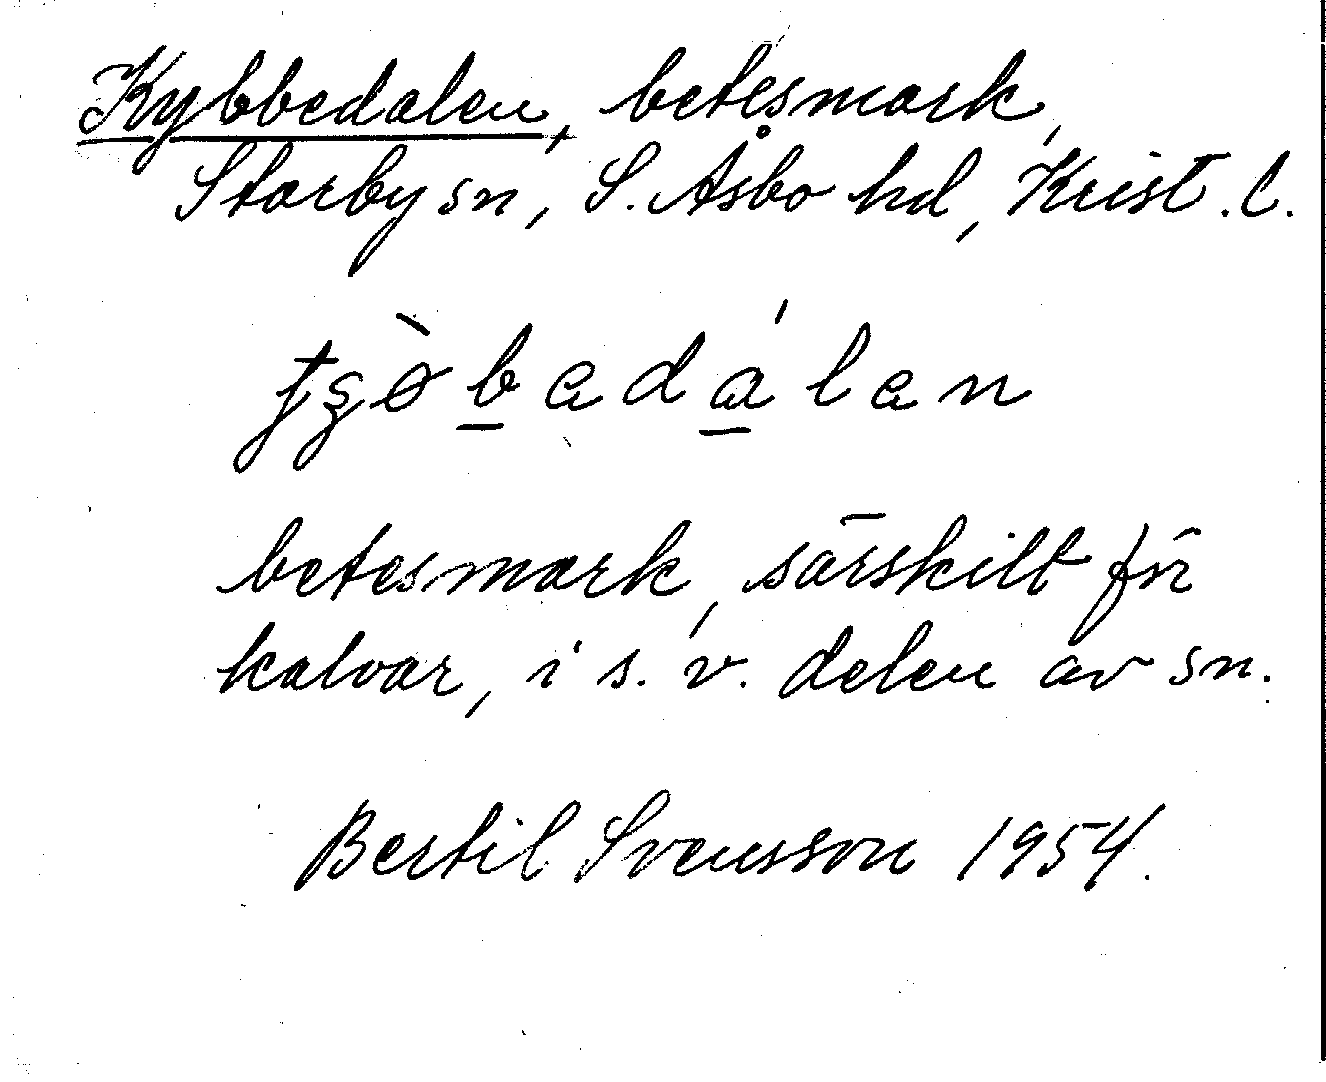 Kybbedalen, betesmark,
Starby sn, S. Åsbo hd, Krist. l.
betesmark, särskilt för
kalvar, i s. v. delen av sn.
Bertil Svensson 1954.